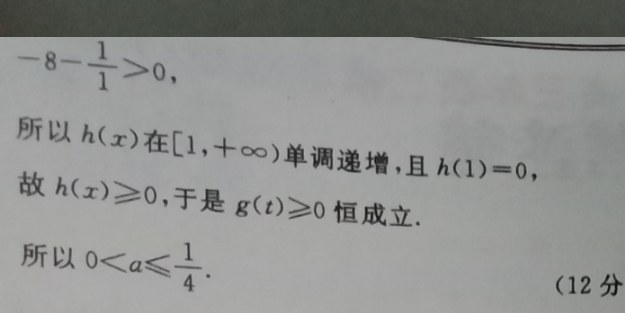 -8-\frac{1}{1}>0,
所以 h(x)在[1,+∞)单调递增,且 h(1)=0,
故 h(x)⩾0,于是 g(t)⩾0 恒成立.
所以 0<a⩽\frac{1}{4}.
(12 分